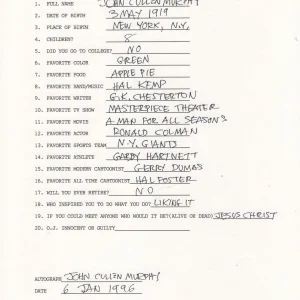 1. FULL NAME JOHN CULLEN MURPHY
2. DATE OF BIRTH 3 MAY 1919
3. PLACE OF BIRTH NEW YORK, N.Y.
4. CHILDREN? 8
5. DID YOU GO TO COLLEGE? NO
6. FAVORITE COLOR GREEN
7. FAVORITE FOOD APPLE PIE
8. FAVORITE BAND/MUSIC HAL KEMP
9. FAVORITE WRITER G.K. CHESTERTON
10. FAVORITE TV SHOW MASTERPIECE THEATER
11. FAVORITE MOVIE A MAN FOR ALL SEASONS
12. FAVORITE ACTOR RONALD COLMAN
13. FAVORITE SPORTS TEAM N.Y. GIANTS
14. FAVORITE ATHLETE GABBY HARTNETT
15. FAVORITE MODERN CARTOONIST GERRY DUMAS
16. FAVORITE ALL TIME CARTOONIST HAL FOSTER
17. WILL YOU EVER RETIRE? NO
18. WHO INSPIRED YOU TO DO WHAT YOU DO? LIKING IT
19. IF YOU COULD MEET ANYONE WHO WOULD IT BE? (ALIVE OR DEAD) JESUS CHRIST
20. O.J. INNOCENT OR GUILTY?
AUTOGRAPH JOHN CULLEN MURPHY
DATE 6 JAN 1996